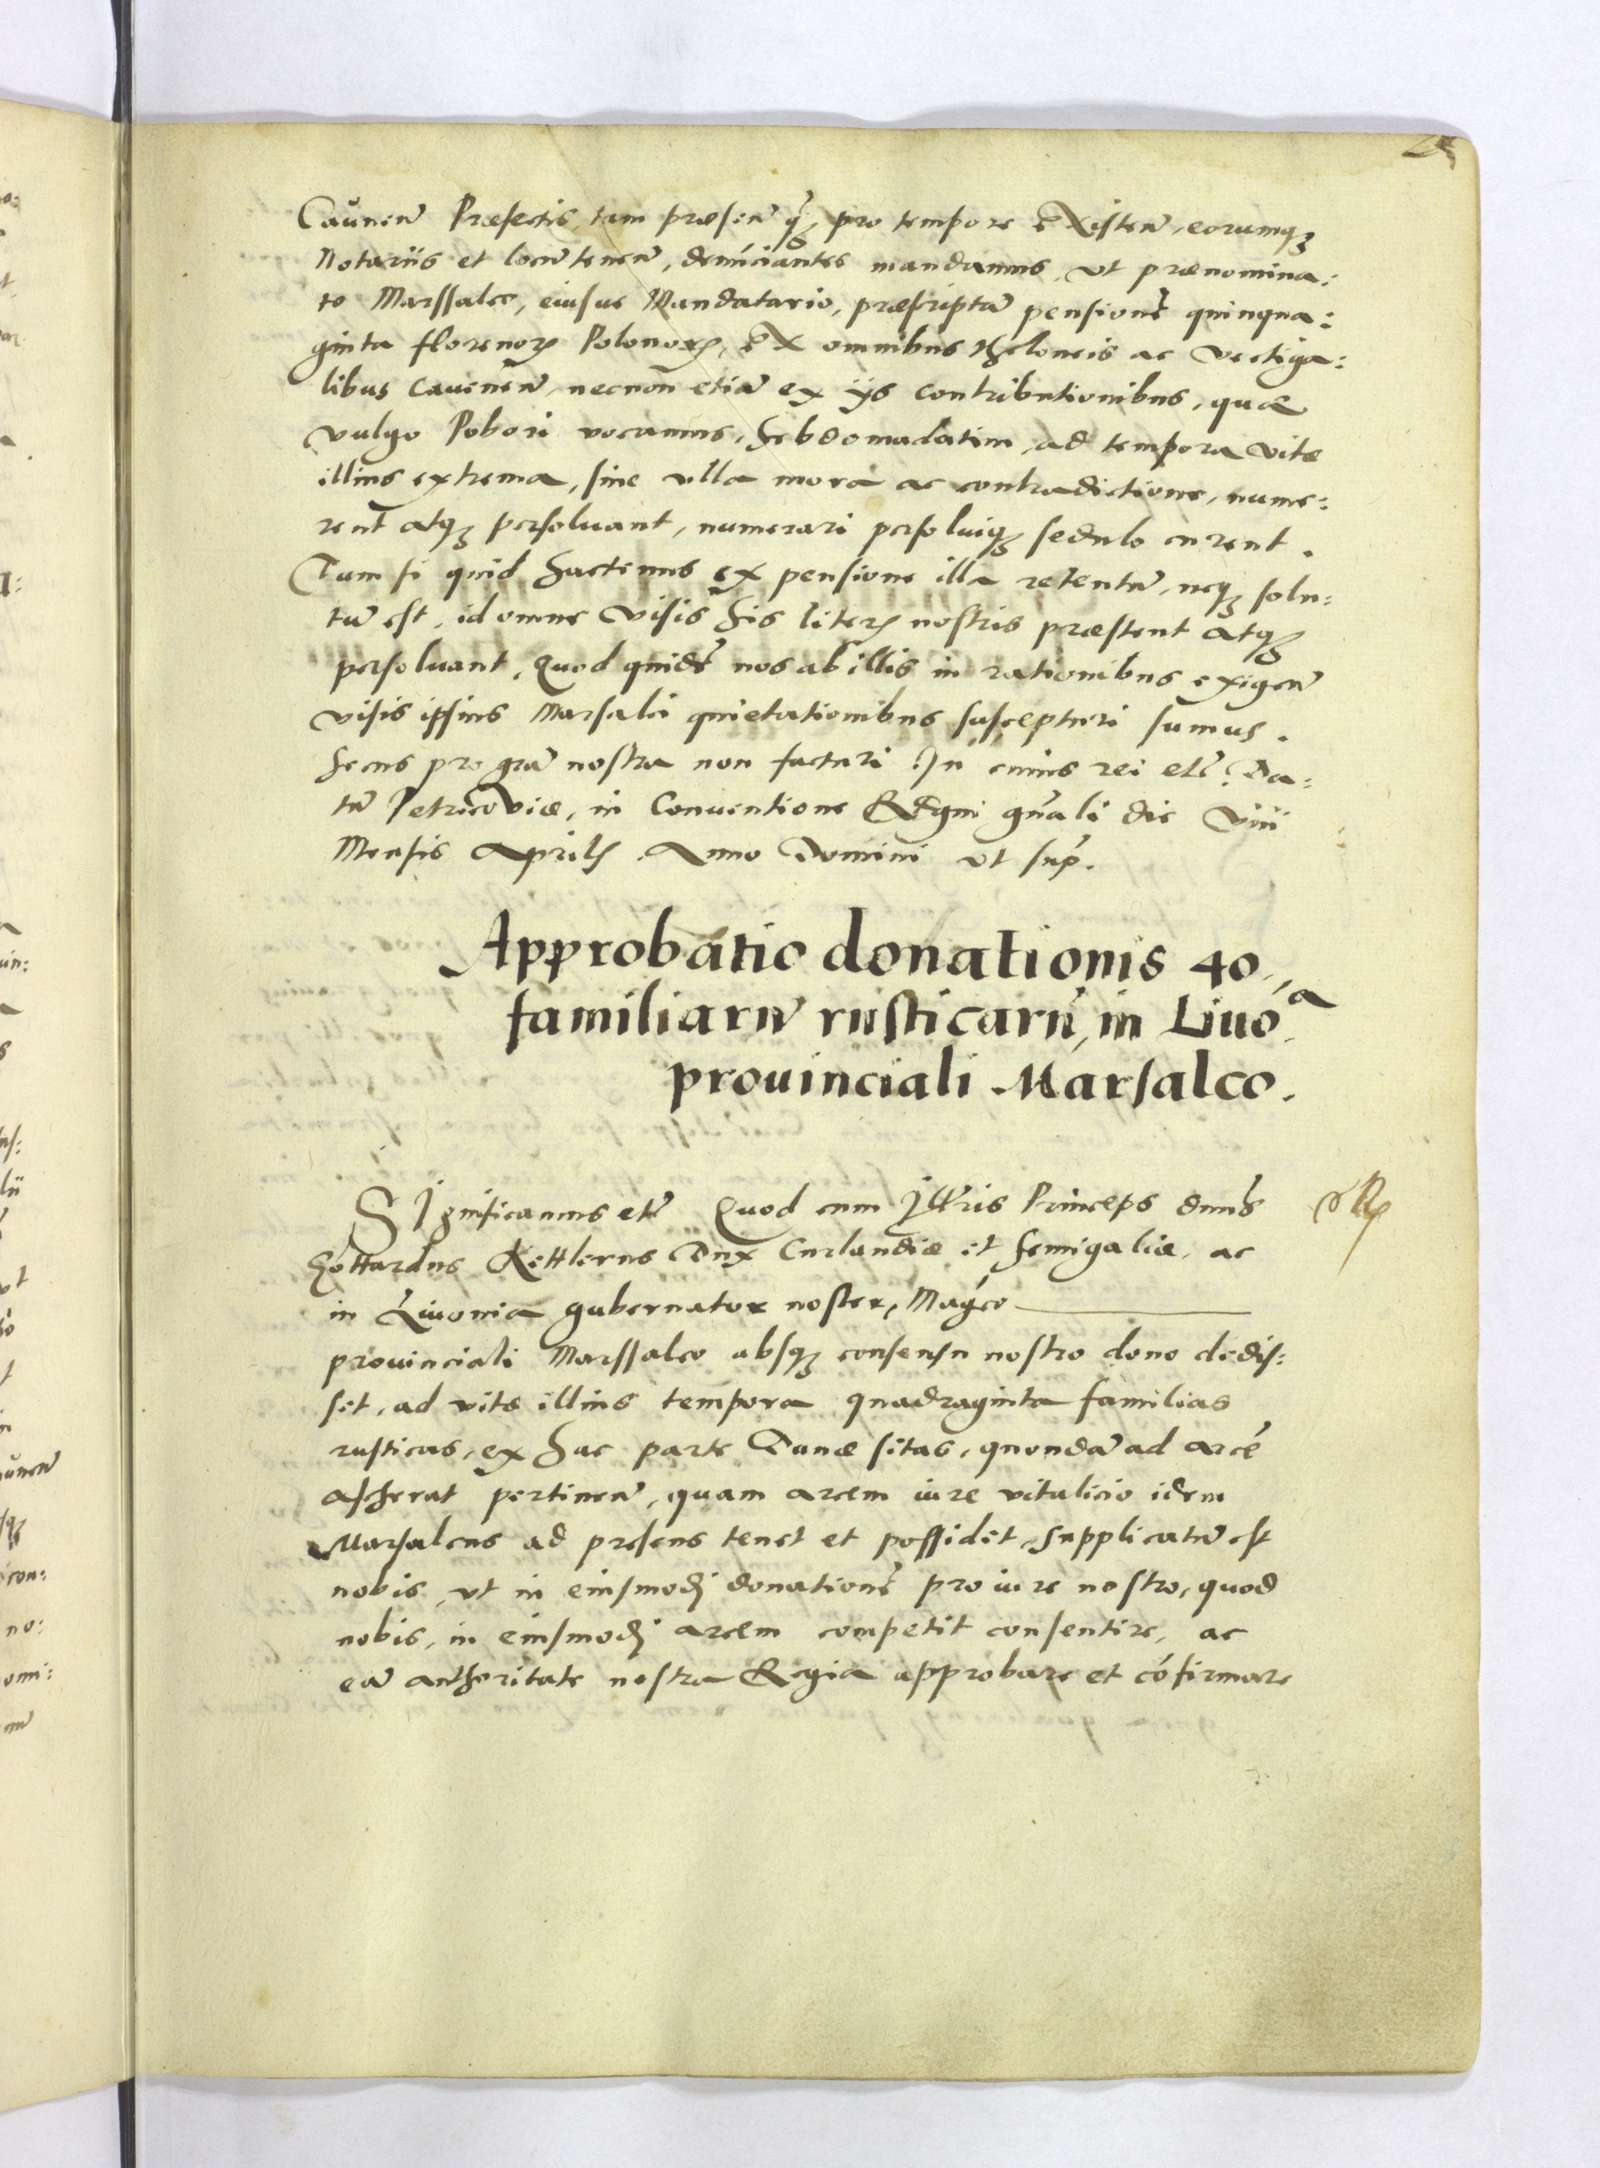 Caunen Præfectis, tam præsen q, pro tempore existen, eorumq
Notariis et locutenen, denunciantes mandamus, ut prænomina:
to Marssalco, eiusve Mandatario, præscripta pensione quinqua:
ginta florenor Polonor, ex omnibus theloneis ac vectiga:
libus Cavenen, necnon etia ex iis contributionibus, quæ
vulgo Pobori vocamus, hebdomadatim, ad tempora vitæ
illius extrema, sine ulla mora ac contradictione, nume:
rent atq persoluant, numerari persoluiq sedulo curent.
Tum si quid hactenus ex pensione illa retentu, neq solu:
tu est, id omne visis his liter nostris præstent atq
persoluant. Quod quide nos ab illis in rationibus exigen
visis ipsius Marsalci quietationibus suscepturi sumus.
secus pro gra nostra non facturi. In cuius rei etc. Da:
tu Petricoviæ, in Conventione Regni gnali die viii
Mensis Aprilis Anno Domini ut sup.
Approbatio donationis 40,
familiaru rusticaru, in Livo a
provinciali Marsalco.
Significamus etc Quod cum Illris Princeps dnus
Gottardus Kettlerus Dux Curlandiæ et Semigaliæ, ac
in Livonia gubernator noster, Magco
provinciali Marssalco absq consensu nostro dono dedis:
set, ad vitæ illius tempora quadraginta familias
rusticas, ex hac parte Dunæ sitas, quonda ad arce
Ascherat pertinen, quam arcem iure vitalicio idem
Marsalcus ad presens tenet et possidet, supplicatu est
nobis, ut in eiusmodi donatione pro iure nostro, quod
nobis, in eiusmodi arcem competit consentire, ac
ea authoritate nostra Regia approbare et cofirmare